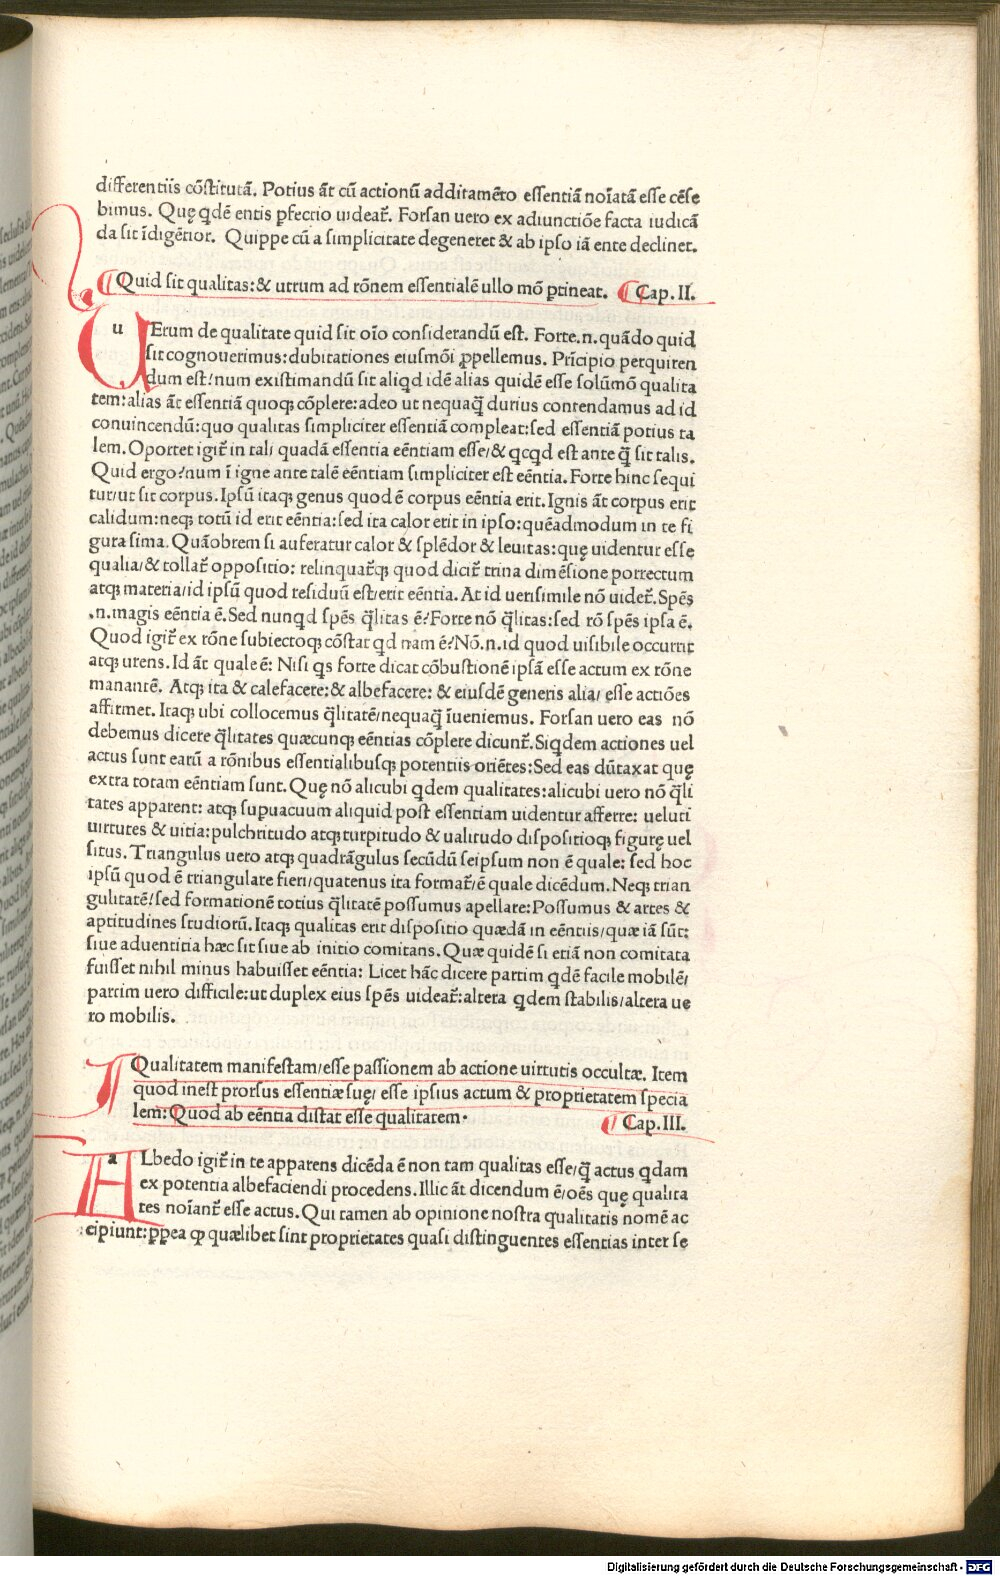 differentiis cōstitutā. Potius āt cū actionū additamēto essentiā noīatā esse cēse
bimus. Quę qdē entis ꝑfectio uideat̄. Forsan uero ex adiunctiōe facta iudicā
da sit īdigētior. Quippe cū a simplicitate degeneret & ab ipso iā ente declinet.
¶ Quid sit qualitas: & utrum ad rōnem essentialē ullo mō ꝑtineat. ¶ Cap. II.
uErum de qualitate quid sit oīo considerandū est. Forte.n.quādo quid
sit cognouerimus: dubitationes eiusmōi ꝓpellemus. Prīcipio perquiren
dum est/num existimandū sit aliqd idē alias quidē esse solūmō qualita
tem: alias āt essentiā quoqꝫ cōplere: adeo ut nequaq̄ durius contendamus ad id
conuincendū: quo qualitas simpliciter essentiā compleat: sed essentiā potius ta
lem. Oportet igit̄ in tali quadā essentia eēntiam esse/& qcqd est ante q̄ sit talis.
Quid ergo? num ī igne ante talē eēntiam simpliciter est eēntia. Forte hinc sequi
tur/ut sit corpus. Ipsū itaqꝫ genus quod ē corpus eēntia erit. Ignis āt corpus erit
calidum: neqꝫ totū id erit eēntia: sed ita calor erit in ipso: quēadmodum in te fi
gura sima. Quāobrem si auferatur calor & splēdor & leuitas: quę uidentur esse
qualia/& tollat̄ oppositio: relinquat̄qꝫ quod dicit̄ trina dimēsione porrectum
atqꝫ materia/id ipsū quod residuū est/erit eēntia. At id uerisimile nō uidet̄. Spēs
.n.magis eēntia ē. Sed nunqd spēs q̄litas ē? Forte nō q̄litas: sed rō spēs ipsa ē.
Quod igit̄ ex rōne subiectoqꝫ cōstat qd nam ē? Nō.n.id quod uisibile occurrit
atqꝫ urens. Id āt quale ē: Nisi qs forte dicat cōbustionē ipsā esse actum ex rōne
manantē. Atqꝫ ita & calefacere: & albefacere: & eiusdē generis alia/ esse actiōes
affirmet. Itaqꝫ ubi collocemus q̄litatē/nequaq̄ īueniemus. Forsan uero eas nō
debemus dicere q̄litates quæcunqꝫ eēntias cōplere dicunt̄. Siqdem actiones uel
actus sunt earū a rōnibus essentialibusqꝫ potentiis oriētes: Sed eas dūtaxat quę
extra totam eēntiam sunt. Quę nō alicubi qdem qualitates: alicubi uero nō q̄li
tates apparent: atqꝫ suꝑuacuum aliquid post essentiam uidentur afferre: ueluti
uirtutes & uitia: pulchritudo atqꝫ turpitudo & ualitudo dispositioqꝫ figurę uel
situs. Triangulus uero atqꝫ quadrāgulus secūdū seipsum non ē quale: sed hoc
ipsū quod ē triangulare fieri/quatenus ita format̄/ē quale dicēdum. Neqꝫ trian
gulitatē/sed formationē totius q̄litatē possumus apellare: Possumus & artes &
aptitudines studiorū. Itaqꝫ qualitas erit dispositio quædā in eēntiis/quæ iā sūt:
siue aduentitia hæc sit siue ab initio comitans. Quæ quidē si etiā non comitata
fuisset nihil minus habuisset eēntia: Licet hāc dicere partim qdē facile mobilē/
partim uero difficile: ut duplex eius spēs uideat̄: altera qdem stabilis/altera ue
ro mobilis.
¶ Qualitatem manifestam/esse passionem ab actione uirtutis occultæ. Item
quod inest prorsus essentiæ suę/ esse ipsius actum & proprietatem specia
lem: Quod ab eēntia distat esse qualitatem. ¶ Cap. III.
aLbedo igit̄ in te apparens dicēda ē non tam qualitas esse/q̄ actus qdam
ex potentia albefaciendi procedens. Illic āt dicendum ē/oēs quę qualita
tes noīant̄ esse actus. Qui tamen ab opinione nostra qualitatis nomē ac
cipiunt: ꝓꝑea ꝙ quælibet sint proprietates quasi distinguentes essentias inter se
Digitalisierung gefördert durch die Deutsche Forschungsgemeinschaft - DFG